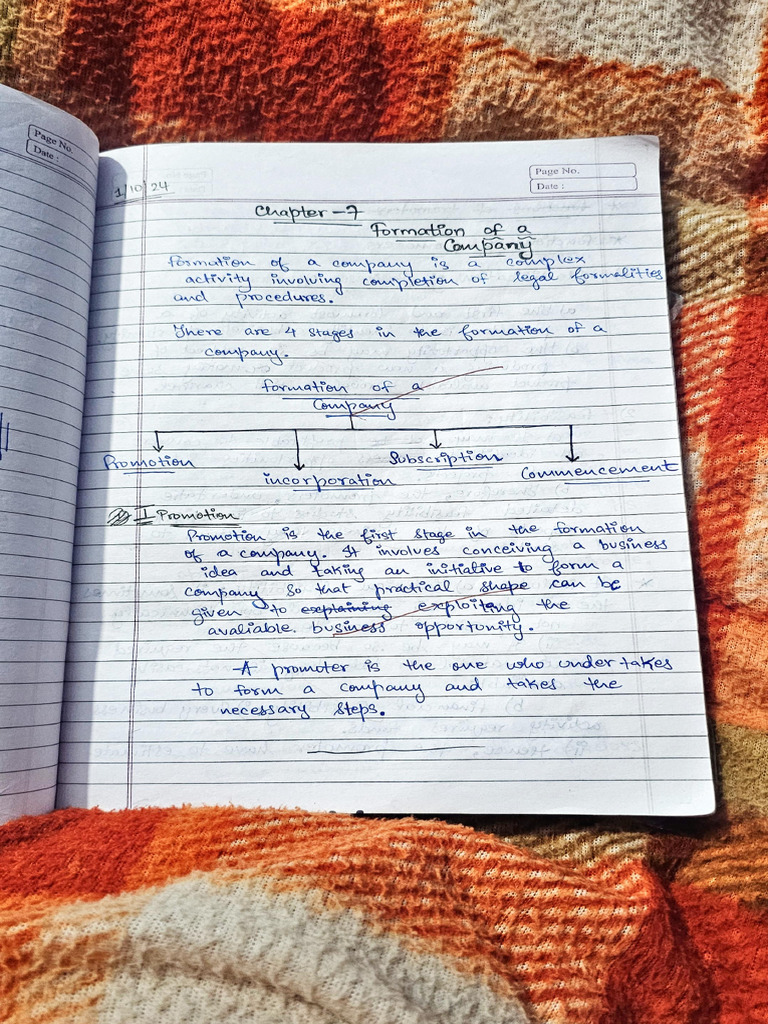 Page No.
Date :
Page No.
Date :
1/10/24
Chapter -7
Formation of a
Company
Formation of a company is a complex
activity involving completion of legal formalities
and procedures.
There are 4 stages in the formation of a
company.
formation of a
Company
Promotion
incorporation
Subscription
Commencement
I Promotion
Promotion is the first stage in the formation
of a company. It involves conceiving a business
idea and taking an initiative to form a
company so that practical shape can be
given to explaining exploiting the
avaliable business opportunity.
A promoter is the one who undertakes
to form a company and takes the
necessary steps.